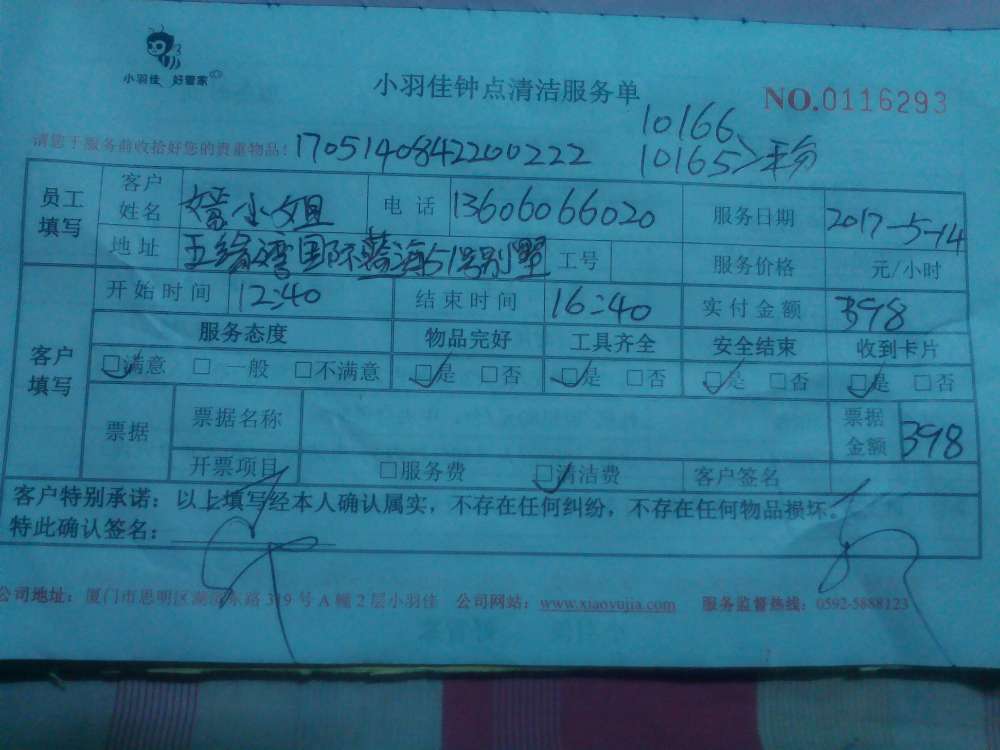 小羽佳 好管家
小羽佳钟点清洁服务单
NO.0116293
10166
请您于服务前收拾好您的贵重物品: 170514084220022​2
10165
员工填写
客户姓名 小姐 电话 13606066020 服务日期 2017-5-14
地址 五缘湾国际蓝海51号别墅 工号 服务价格 元/小时
客户填写
开始时间 12:40 结束时间 16:40 实付金额 398
服务态度 物品完好 工具齐全 安全结束 收到卡片
☑满意 □一般 □不满意 ☑是 □否 ☑是 □否 ☑是 □否 ☑是 □否
票据 票据名称 票据金额 398
开票项目 □服务费 ☑清洁费 客户签名
客户特别承诺：以上填写经本人确认属实，不存在任何纠纷，不存在任何物品损坏。
特此确认签名：
公司地址：厦门市思明区湖滨东路319号A幢2层小羽佳 公司网站：www.xiaoyujia.com 服务监督热线：0592-5888123